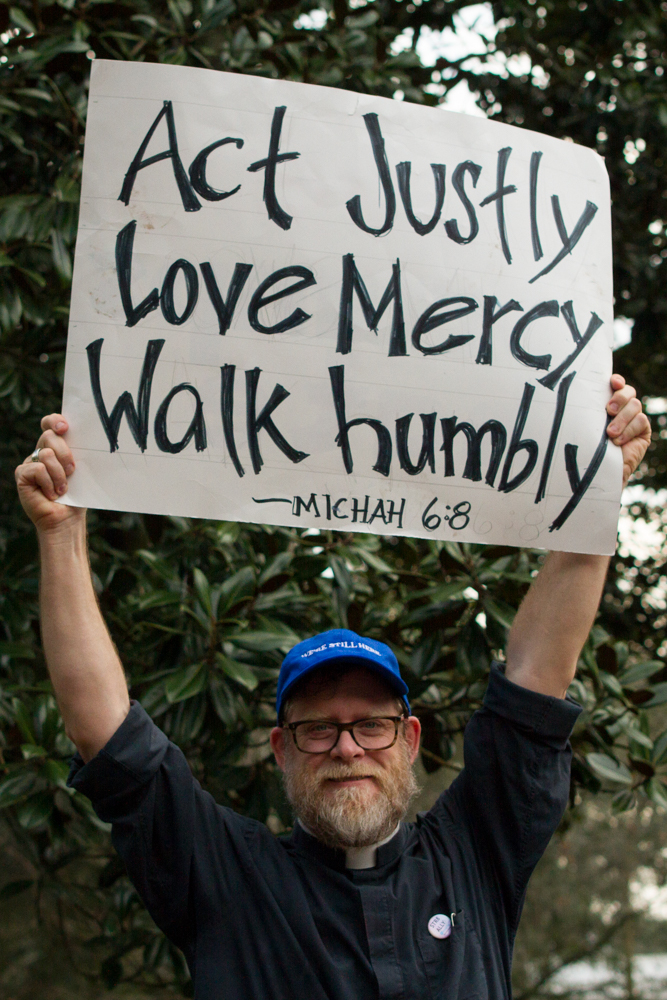 Act Justly
Love Mercy
Walk humbly
—MICHAH 6:8
WE'RE STILL HERE.